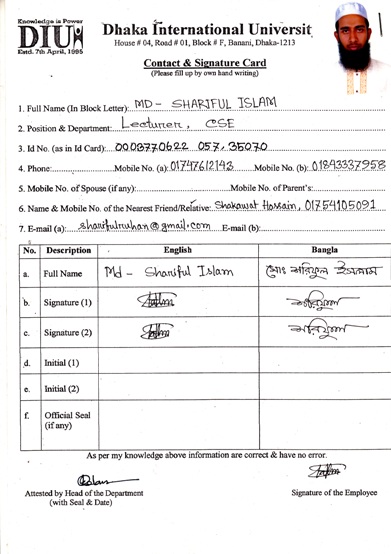 Knowledge is Power
DIU
Estd. 7th April, 1995
Dhaka International Universit
House # 04, Road # 01, Block # F, Banani, Dhaka-1213
Contact & Signature Card
(Please fill up by own hand writing)
1. Full Name (In Block Letter): MD- SHARIFUL ISLAM
2. Position & Department: Lecturer, CSE
3. Id No. (as in Id Card): 0008770622 057,35070
4. Phone: Mobile No. (a): 01747612143 Mobile No. (b): 01843337958
5. Mobile No. of Spouse (if any): Mobile No. of Parent's:
6. Name & Mobile No. of the Nearest Friend/Relative: Shakawat Hossain, 01754105091
7. E-mail (a): sharifulruhan@gmail.com E-mail (b):
No. Description English Bangla
a. Full Name Md - Shariful Islam মোঃ শরিফুল ইসলাম
b. Signature (1) শরিফুল
c. Signature (2) শরিফুল
d. Initial (1)
e. Initial (2)
f. Official Seal
(if any)
As per my knowledge above information are correct & have no error.
Attested by Head of the Department
(with Seal & Date)
Signature of the Employee